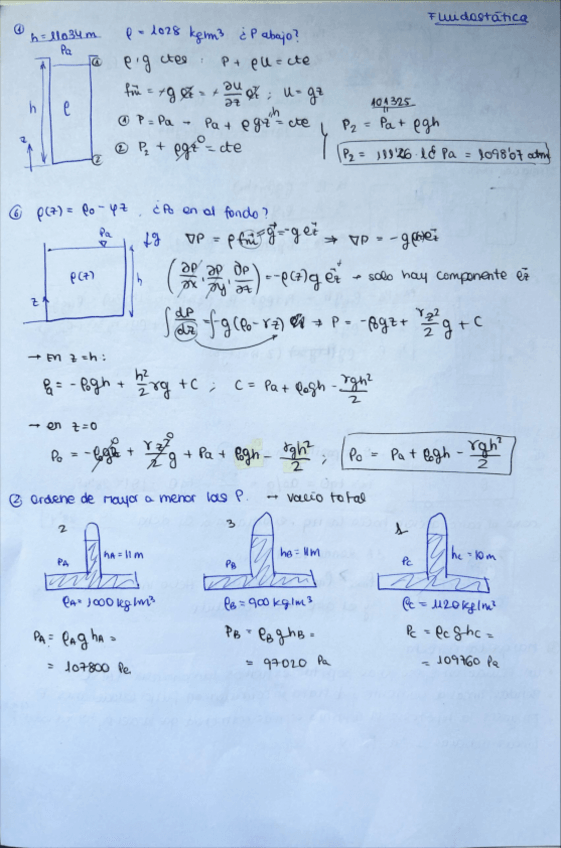 Fluidostática
① h = 11034 m. ρ = 1028 kg/m³ ¿P abajo?
Pa
ρ · g ctes : P + ρU = cte
fm = -g ez = - ∂U/∂z ez ; U = gz
h
ρ
z
① P = Pa → Pa + ρgz^h = cte
② P2 + ρgz^0 = cte
101325
P2 = Pa + ρgh
P2 = 111'26·10⁶ Pa = 1098'07 atm
⑥ ρ(z) = ρ0 - γz. ¿P0 en el fondo?
Pa
ρ(z)
h
z
↓g
∇P = ρ fm = g = -g ez ⇒ ∇P = -gρ ez
(∂P/∂x, ∂P/∂y, ∂P/∂z) = -ρ(z)g ez → solo hay componente ez
∫ dP/dz = ∫ -g(ρ0 - γz) dz ⇒ P = -ρ0gz + γz²/2 g + C
→ En z = h :
Pa = -ρ0gh + h²/2 γg + C ; C = Pa + ρ0gh - γgh²/2
→ en z = 0
P0 = -ρ0gz^0 + γz²^0/2 g + Pa + ρ0gh - γgh²/2 ; P0 = Pa + ρ0gh - γgh²/2
② Ordene de mayor a menor las P. → vacío total
2 3 1
PA hA = 11 m PB hB = 11 m PC hC = 10 m
ρA = 1000 kg/m³ ρB = 900 kg/m³ ρC = 1120 kg/m³
PA = ρA g hA = PB = ρB g hB = PC = ρC g hC =
= 107800 Pa = 97020 Pa = 109760 Pa